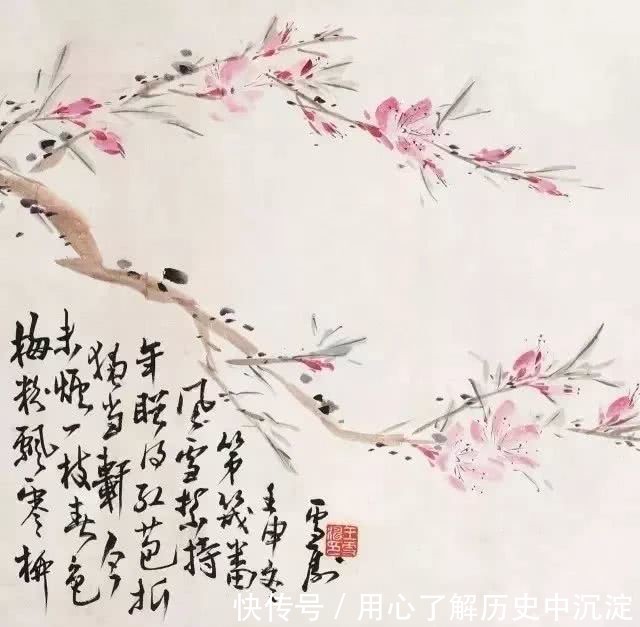 梅粉飄零柳
未煙一枝春色
獨當軒今
年得紅苞拆
風雪禁持
第幾番
壬申
雪濤
快传号 / 用心了解历史中沉淀